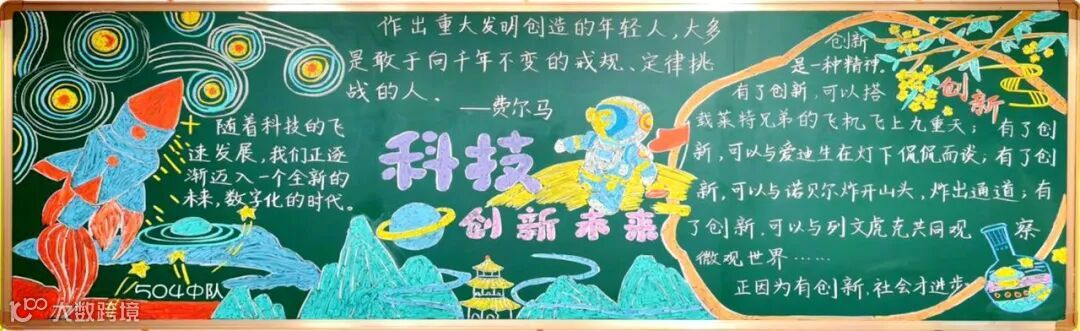 作出重大发明创造的年轻人，大多
是敢于向千年不变的戒规、定律挑
战的人。
——费尔马
随着科技的飞
速发展，我们正逐
渐迈入一个全新的
未来，数字化的时代。
504中队
科技
创新未来
创新
是一种精神。
创新
有了创新，可以搭
载莱特兄弟的飞机飞上九重天；有了创
新，可以与爱迪生在灯下侃侃而谈；有了创
新，可以与诺贝尔炸开山头，炸出通道；有
了创新，可以与列文虎克共同观察
微观世界……
正因为有创新，社会才进步
大数跨境